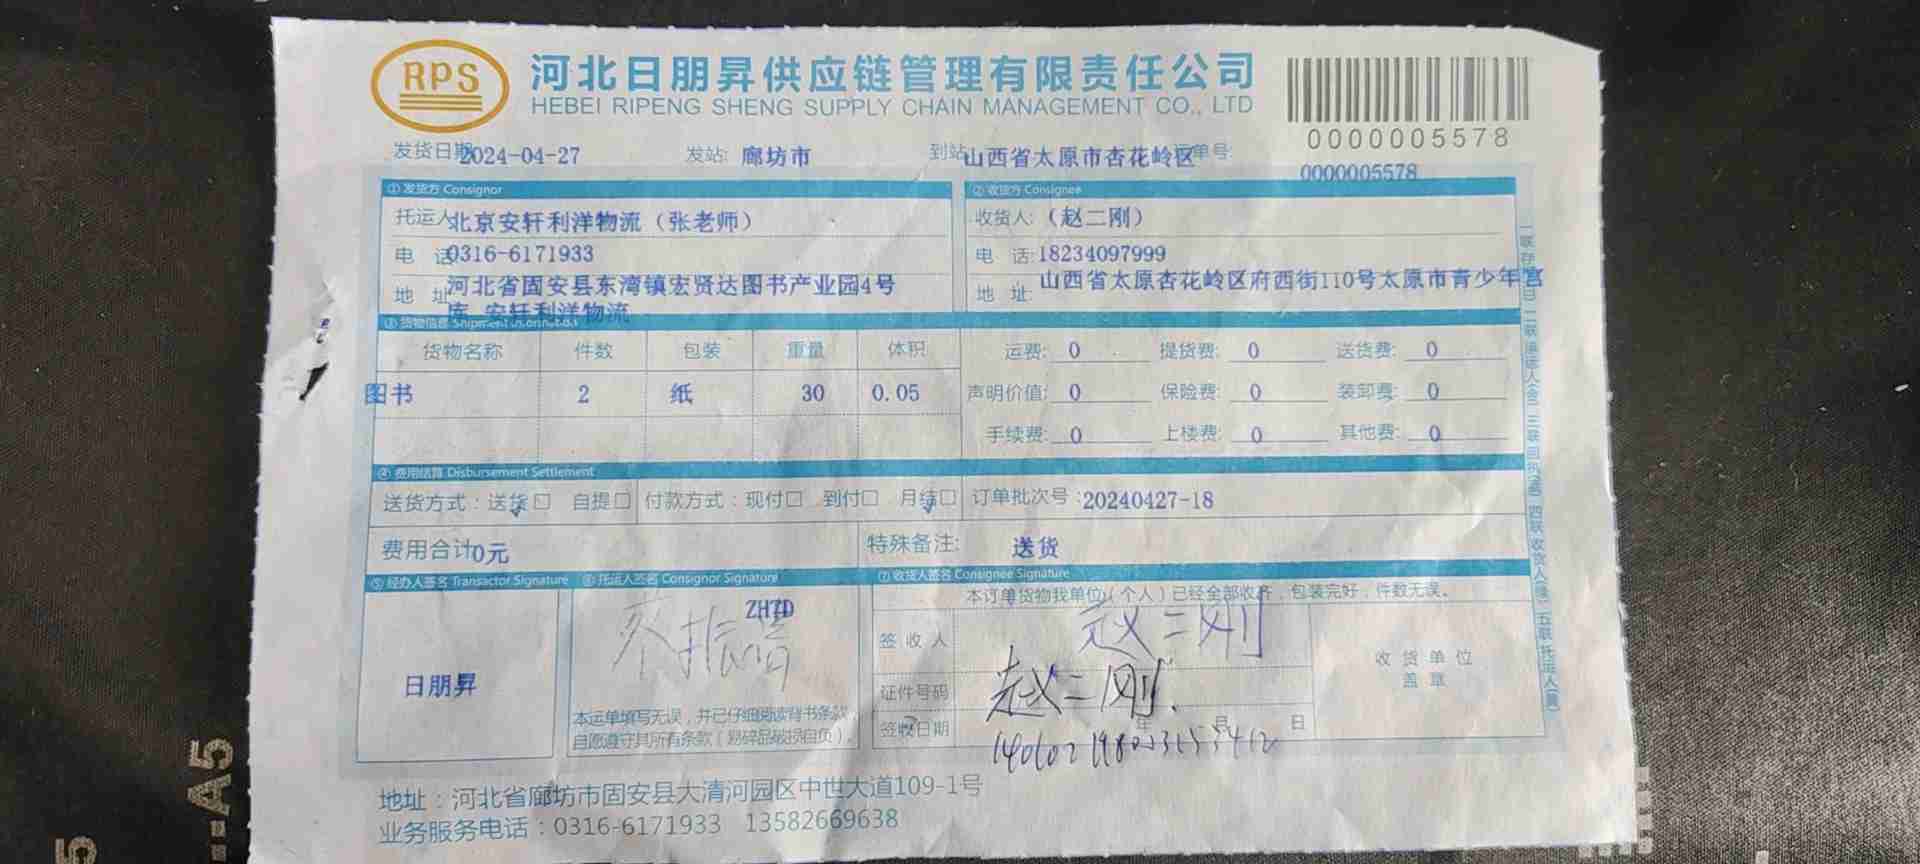 RPS
河北日朋昇供应链管理有限责任公司
HEBEI RIPENG SHENG SUPPLY CHAIN MANAGEMENT CO., LTD
0000005578
发货日期 2024-04-27 发站: 廊坊市 到站 山西省太原市杏花岭区 订单号:
0000005578
①发货方 Consignor ②收货方 Consignee
托运人 北京安轩利洋物流（张老师） 收货人:（赵二刚）
电 话 0316-6171933 电 话: 18234097999
地 址 河北省固安县东湾镇宏贤达图书产业园4号 地 址: 山西省太原杏花岭区府西街110号太原市青少年宫
库 安轩利洋物流
③货物信息 Shipment Information
货物名称 件数 包装 重量 体积 运费: 0 提货费: 0 送货费: 0
图书 2 纸 30 0.05 声明价值: 0 保险费: 0 装卸费: 0
手续费: 0 上楼费: 0 其他费: 0
④费用结算 Disbursement Settlement
送货方式：送货☐ 自提☐ 付款方式：现付☐ 到付☐ 月结☐ 订单批次号：20240427-18
费用合计 0元 特殊备注: 送货
⑤经办人签名 Transactor Signature ⑥托运人签名 Consignor Signature ⑦收货人签名 Consignee Signature
本订单货物我单位（个人）已经全部收齐，包装完好，件数无误。
ZHZD
签收人 赵二刚
收货单位
盖章
日朋昇
证件号码 赵二刚.
本运单填写无误，并已仔细阅读背书条款，
自愿遵守其所有条款（易碎品破损自负）。
签收日期 年 月 日
地址：河北省廊坊市固安县大清河园区中世大道109-1号
业务服务电话：0316-6171933 13582669638
--A5
5